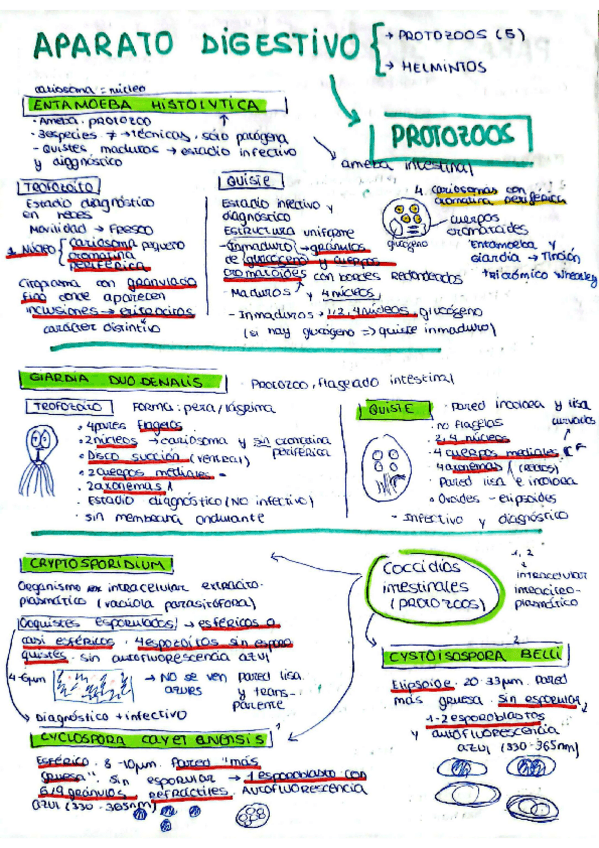 APARATO DIGESTIVO
→ PROTOZOOS (5)
→ HELMINTOS
cariosoma = núcleo
ENTAMOEBA HISTOLYTICA
- Ameba. PROTOZOO
- 3 especies ≠ → técnicas, sólo patógena
- Quistes maduros → estadio infectivo
y diagnóstico
PROTOZOOS
ameba intestinal
TROFOZOÍTO
Estadio diagnóstico
en heces
Movilidad → FRESCO
1 NÚCLEO
cariosoma pequeño
cromatina
periférica
Citoplasma con granulado
fino donde aparecen
inclusiones → eritrocitos
carácter distintivo
QUISTE
Estadio infectivo y
diagnóstico
Estructura uniforme
- Inmaduro → gránulos
de glucógeno y cuerpos
cromatoides con bordes redondeados
- Maduros → 4 núcleos
- Inmaduros → 1, 2, 4 núcleos, glucógeno
(si hay glucógeno => quiste inmaduro)
4 cariosomas con
cromatina periférica
cuerpos
cromatoides
glucógeno
Entamoeba y
Giardia → Tinción
tricrómico Wheatley
GIARDIA DUODENALIS
· Protozoo, flagelado intestinal
TROFOZOÍTO
Forma: pera / lágrima
• 4 pares flagelos
• 2 núcleos → cariosoma y sin cromatina
periférica
• Disco succión (ventral)
• 2 cuerpos mediales
• 2 axonemas
• Estadio diagnóstico (NO infectivo)
• sin membrana ondulante
QUISTE
· Pared incolora y lisa
no flagelos
• 2, 4 núcleos
• 4 cuerpos mediales
curvados
• 4 axonemas (rectos)
• Pared lisa e incolora
• Ovoides - elipsoides
- Infectivo y diagnóstico
CRYPTOSPORIDIUM
Organismo intracelular extracito-
plasmático (vacuola parasitófora)
Ooquistes esporulados → esféricos o
casi esféricos. 4 esporozoítos sin esporo
quistes. sin autofluorescencia azul
4-6µm
→ NO se ven
azules
pared lisa
y trans-
parente
→ Diagnóstico + infectivo
Coccidios
intestinales
(PROTOZOOS)
1, 2
intracelular
intracito-
plasmático
CYCLOSPORA CAYETANENSIS
Esférico. 8-10µm. Pared "más
gruesa". Sin esporular → 1 esporoblasto con
6/9 gránulos refráctiles. AUTOFLUORESCENCIA
azul (330-365nm)
2
CYSTOISOSPORA BELLI
Elipsoide. 20-33µm. Pared
más gruesa. Sin esporular,
1-2 esporoblastos
y autofluorescencia
azul (330-365nm)